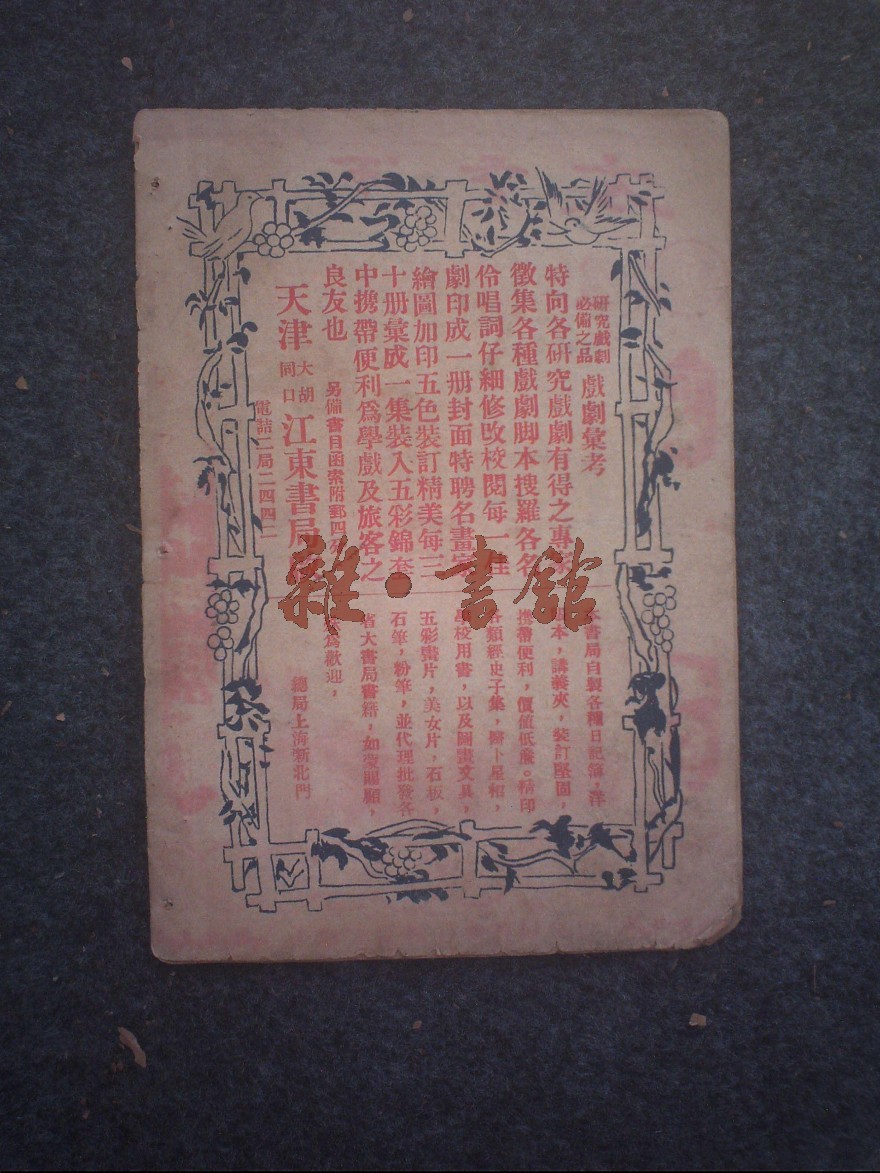 研究戲劇
必備之品
戲劇彙考
特向各研究戲劇有得之專家
徵集各種戲劇脚本搜羅各名
伶唱詞仔細修改校閱每一
劇印成一册封面特聘名畫
繪圖加印五色裝訂精美每三
十册彙成一集裝入五彩錦套
中携帶便利爲學戲及旅客之
良友也
另備書目函索附郵四
天津
大胡
同口
江東書局
電話二局二四四二
本書局自製各種日記簿，洋
本，講義夾，裝訂堅固，
携帶便利，價值低廉。精印
各類經史子集，醫卜星相，
學校用書，以及圖畫文具，
五彩畫片，美女片，石板，
石筆，粉筆，並代理批發各
省大書局書籍，如蒙賜顧，
爲歡迎，
總局上海新北門
雜·書館